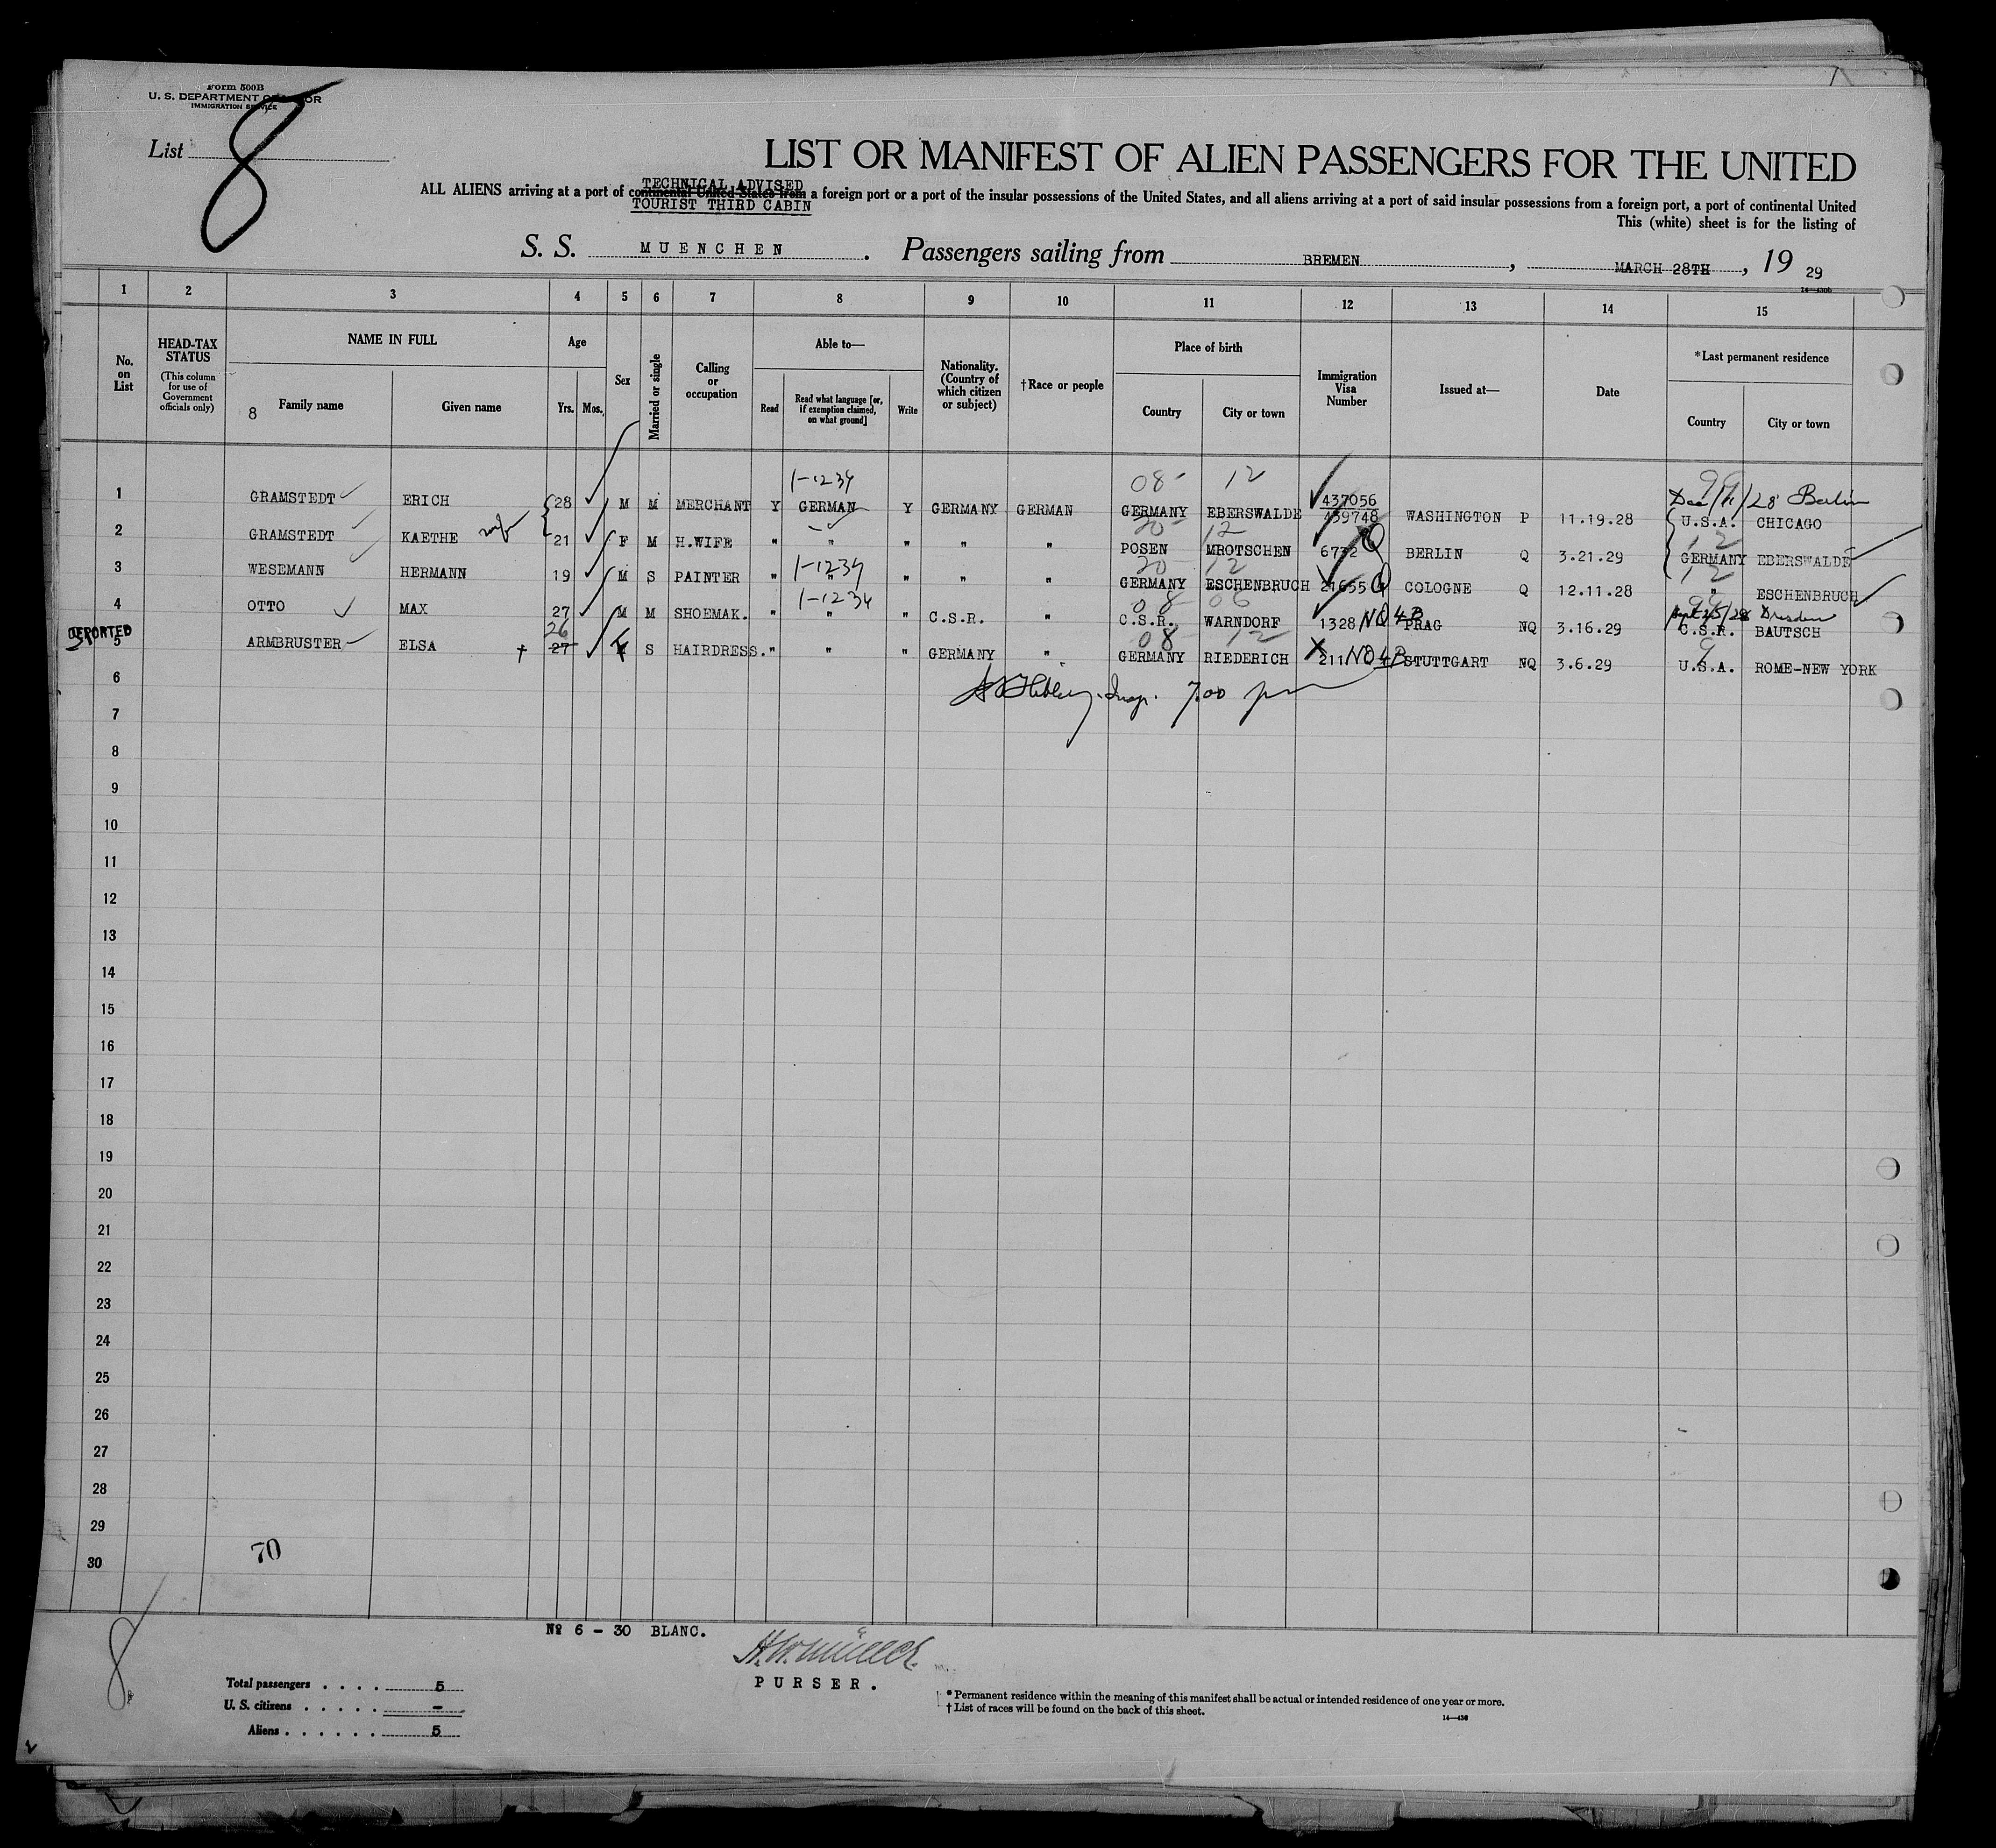 Form 500B
U. S. DEPARTMENT OF LABOR
IMMIGRATION SERVICE
List 8
LIST OR MANIFEST OF ALIEN PASSENGERS FOR THE UNITED
TECHNICAL ADVISED
ALL ALIENS arriving at a port of continental United States from a foreign port or a port of the insular possessions of the United States, and all aliens arriving at a port of said insular possessions from a foreign port, a port of continental United
TOURIST THIRD CABIN
This (white) sheet is for the listing of
S. S. MUENCHEN . Passengers sailing from BREMEN , MARCH 28TH , 19 29
1 2 3 4 5 6 7 8 9 10 11 12 13 14 15
No. on List
HEAD-TAX STATUS
(This column for use of Government officials only)
NAME IN FULL
8 Family name
Given name
Age
Yrs. Mos.
Sex
Married or single
Calling or occupation
Able to—
Read
Read what language [or, if exemption claimed, on what ground]
Write
Nationality. (Country of which citizen or subject)
†Race or people
Place of birth
Country
City or town
Immigration Visa Number
Issued at—
Date
*Last permanent residence
Country
City or town
1-1234 08- 12 99 Dec/11/28 Berlin
1 GRAMSTEDT ERICH 28 M M MERCHANT Y GERMAN Y GERMANY GERMAN GERMANY EBERSWALDE 437056 439748 WASHINGTON P 11.19.28 U.S.A. CHICAGO
20- 12 12
2 GRAMSTEDT KAETHE wf 21 F M H.WIFE " " " " " POSEN MROTSCHEN 6732 Q BERLIN Q 3.21.29 GERMANY EBERSWALDE
1-1234 20- 12 12
3 WESEMANN HERMANN 19 M S PAINTER " " " " " GERMANY ESCHENBRUCH 21655 Q COLOGNE Q 12.11.28 " ESCHENBRUCH
1-1234 08- 06 99 28 Dresden
4 OTTO MAX 27 M M SHOEMAK. " " " C.S.R. " C.S.R. WARNDORF 1328 NQ 4B PRAG NQ 3.16.29 C.S.R. BAUTSCH
DEPORTED
26 08 12 9
5 ARMBRUSTER ELSA † 27 S HAIRDRESS. " " " GERMANY " GERMANY RIEDERICH X 211 NQ 4B STUTTGART NQ 3.6.29 U.S.A. ROME-NEW YORK
6 Insp. 7.00 pm
7
8
9
10
11
12
13
14
15
16
17
18
19
20
21
22
23
24
25
26
27
28
29
30
70
№ 6 - 30 BLANC.
8
PURSER.
Total passengers . . . . 5
U. S. citizens . . . . . -
Aliens . . . . . . 5
* Permanent residence within the meaning of this manifest shall be actual or intended residence of one year or more.
† List of races will be found on the back of this sheet.
14—430